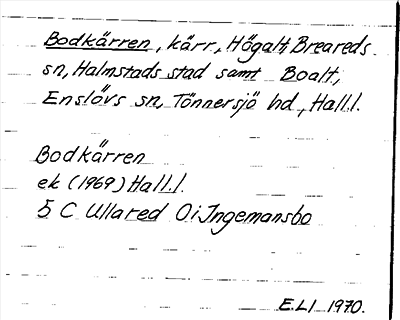 Bodkärren, kärr, Högalt, Breareds
sn, Halmstads stad samt Boalt,
Enslövs sn, Tönnersjö hd, Hall.l.
Bodkärren
ek (1969) Hall.l.
5 C Ullared O i Ingemansbo
E.LI 1970.